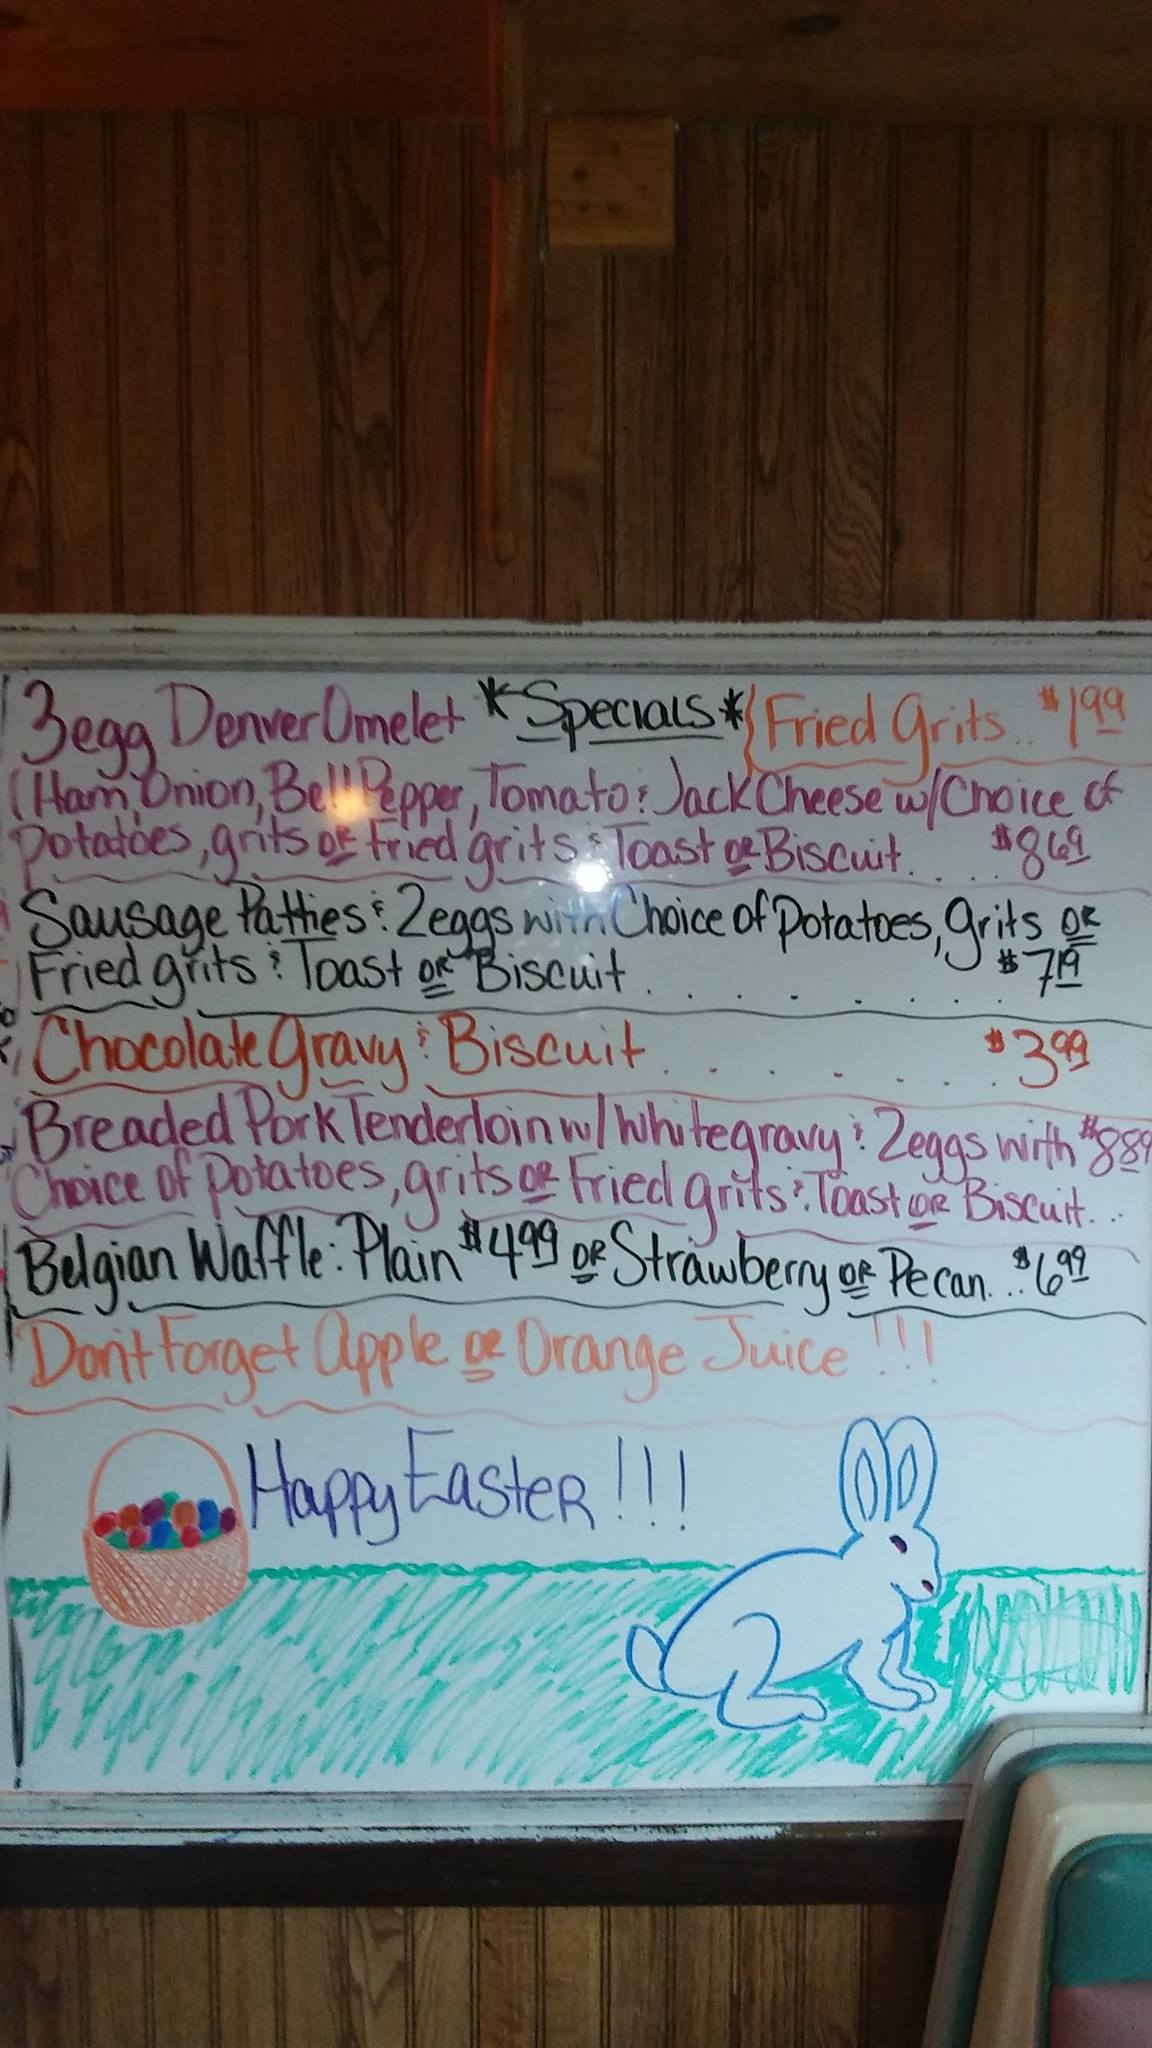 3egg Denver Omelet *Specials* {Fried Grits.. $1.99
(Ham, Onion, Bell Pepper, Tomato & Jack Cheese w/Choice of
Potatoes, grits or Fried grits & Toast or Biscuit..... $8.69
Sausage Patties & 2eggs with Choice of Potatoes, grits or
Fried grits & Toast or Biscuit........ $7.19
Chocolate Gravy & Biscuit........ $3.99
Breaded Pork Tenderloin w/ White gravy & 2eggs with $8.89
Choice of Potatoes, grits or Fried grits & Toast or Biscuit...
Belgian Waffle: Plain $4.99 or Strawberry or Pecan... $6.99
Dont Forget Apple or Orange Juice !!!
Happy Easter !!!